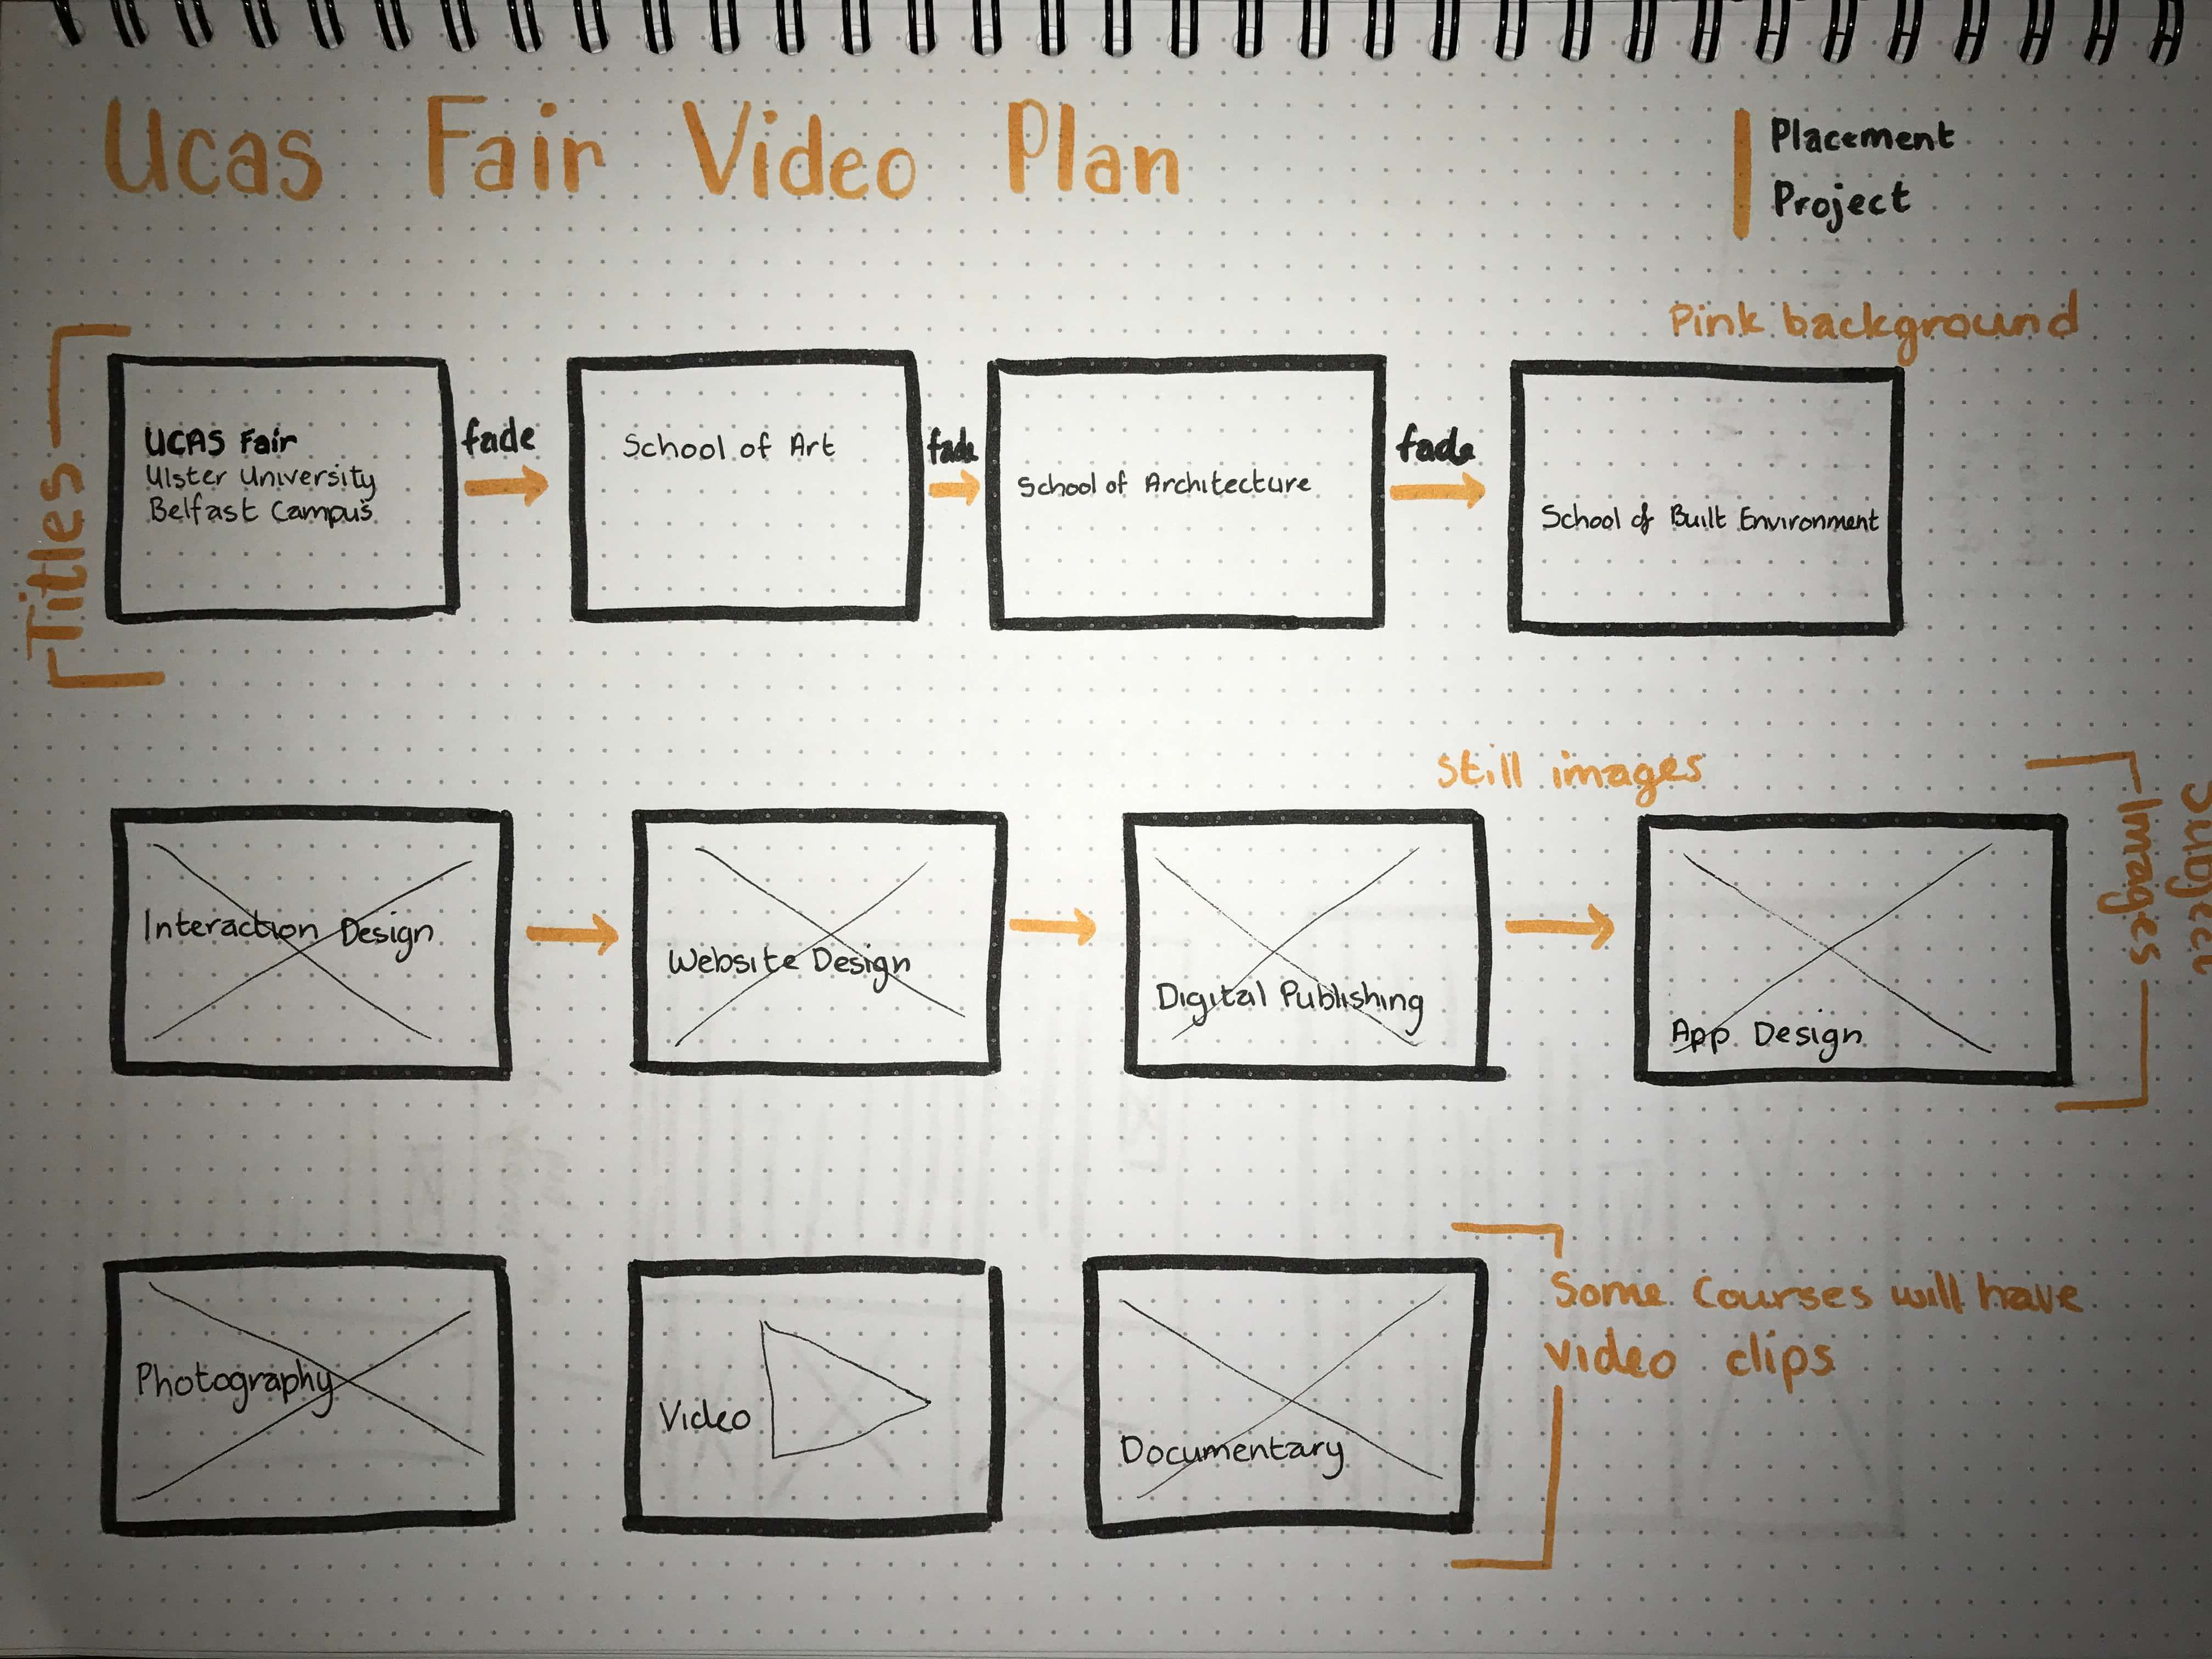 Ucas Fair Video Plan
Placement
Project
Pink background
Titles
UCAS Fair
Ulster University
Belfast Campus
fade
School of Art
fade
School of Architecture
fade
School of Built Environment
Still images
Subject
Images
Interaction Design
Website Design
Digital Publishing
App Design
Photography
Video
Documentary
Some Courses will have
video clips